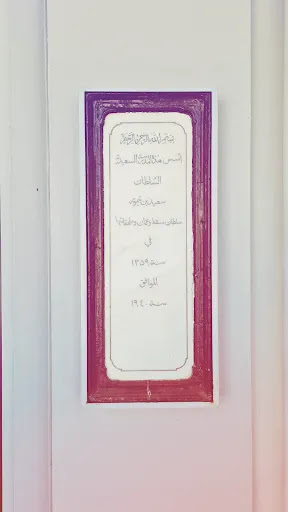 بسم الله الرحمن الرحيم
أسس هذه المدرسة السعيدية
السلطان
سعيد بن تيمور
سلطان مسقط وعمان وملحقاتها
في
سنة ١٣٥٩
الموافق
سنة ١٩٤٠